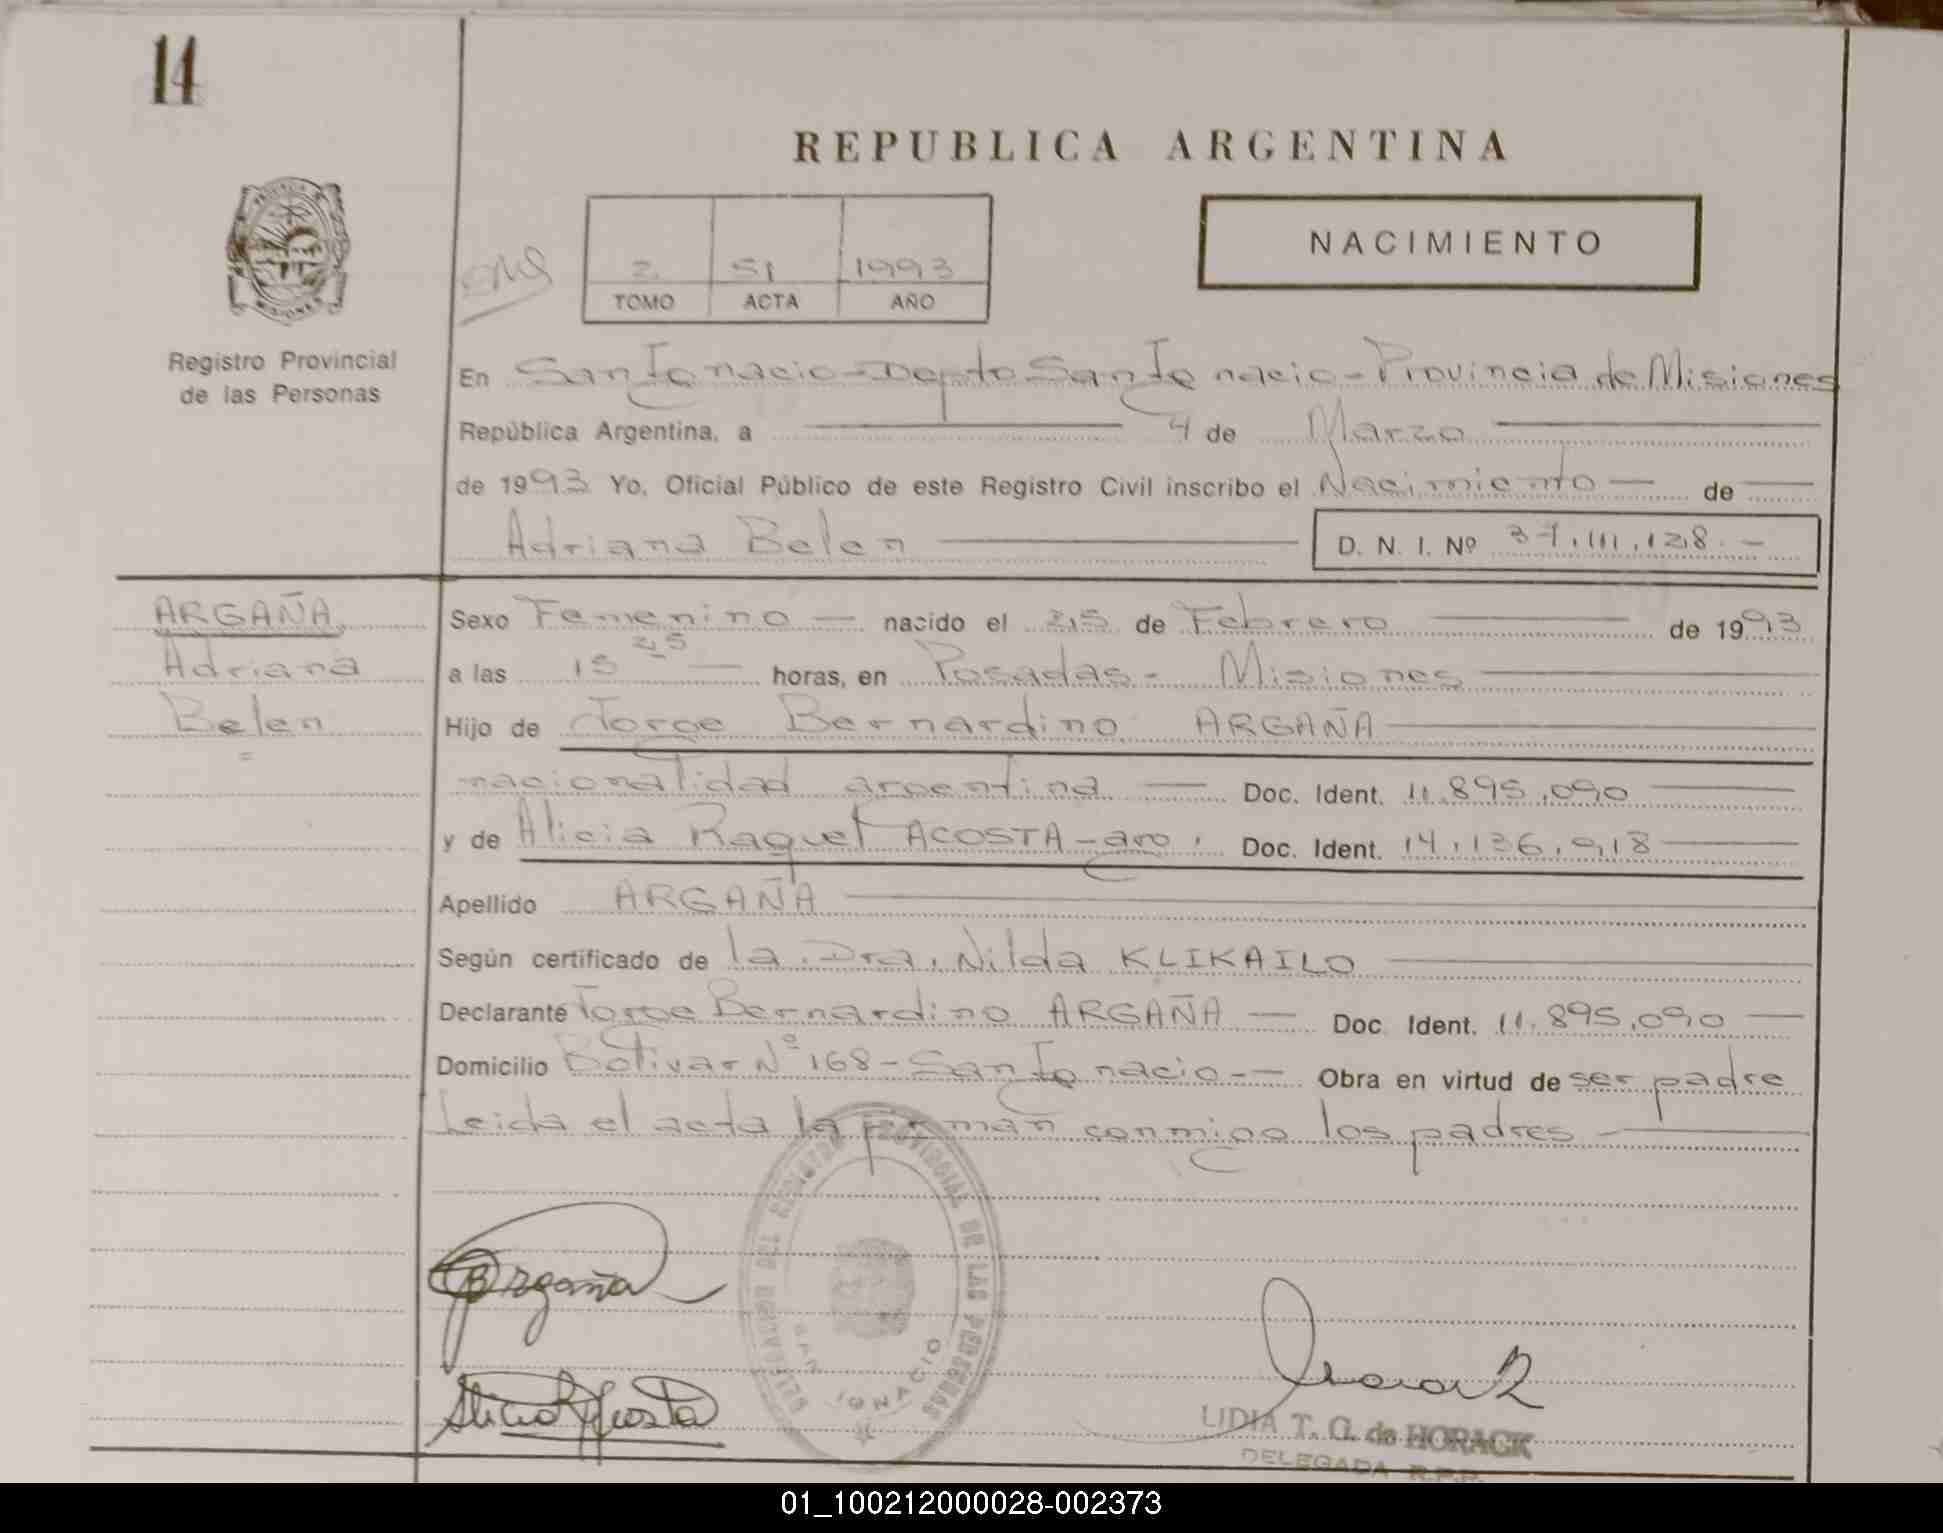 14
REPUBLICA ARGENTINA
NACIMIENTO
2 51 1993
TOMO ACTA AÑO
Registro Provincial
de las Personas
En San Ignacio - Depto San Ignacio - Provincia de Misiones
República Argentina, a 4 de Marzo
de 1993 Yo, Oficial Público de este Registro Civil inscribo el Nacimiento de
Adriana Belen D. N. I. Nº
ARGAÑA
Adriana
Belen
Sexo Femenino nacido el 25 de Febrero de 1993
a las 15 45 horas, en Posadas - Misiones
Hijo de Jorge Bernardino ARGAÑA
nacionalidad argentina Doc. Ident. 11.895.090
y de Alicia Raquel ACOSTA - arg. Doc. Ident. 14.136.918
Apellido ARGAÑA
Según certificado de la Dra. Nilda KLIKAILO
Declarante Jorge Bernardino ARGAÑA Doc. Ident. 11.895.090
Domicilio Bolivar Nº 168 - San Ignacio - Obra en virtud de ser padre
Leida el acta la firman conmigo los padres
Argaña
Alicia R Acosta
SAN IGNACIO
LIDIA T. G. de HORACK
DELEGADA R.P.P.
01_100212000028-002373